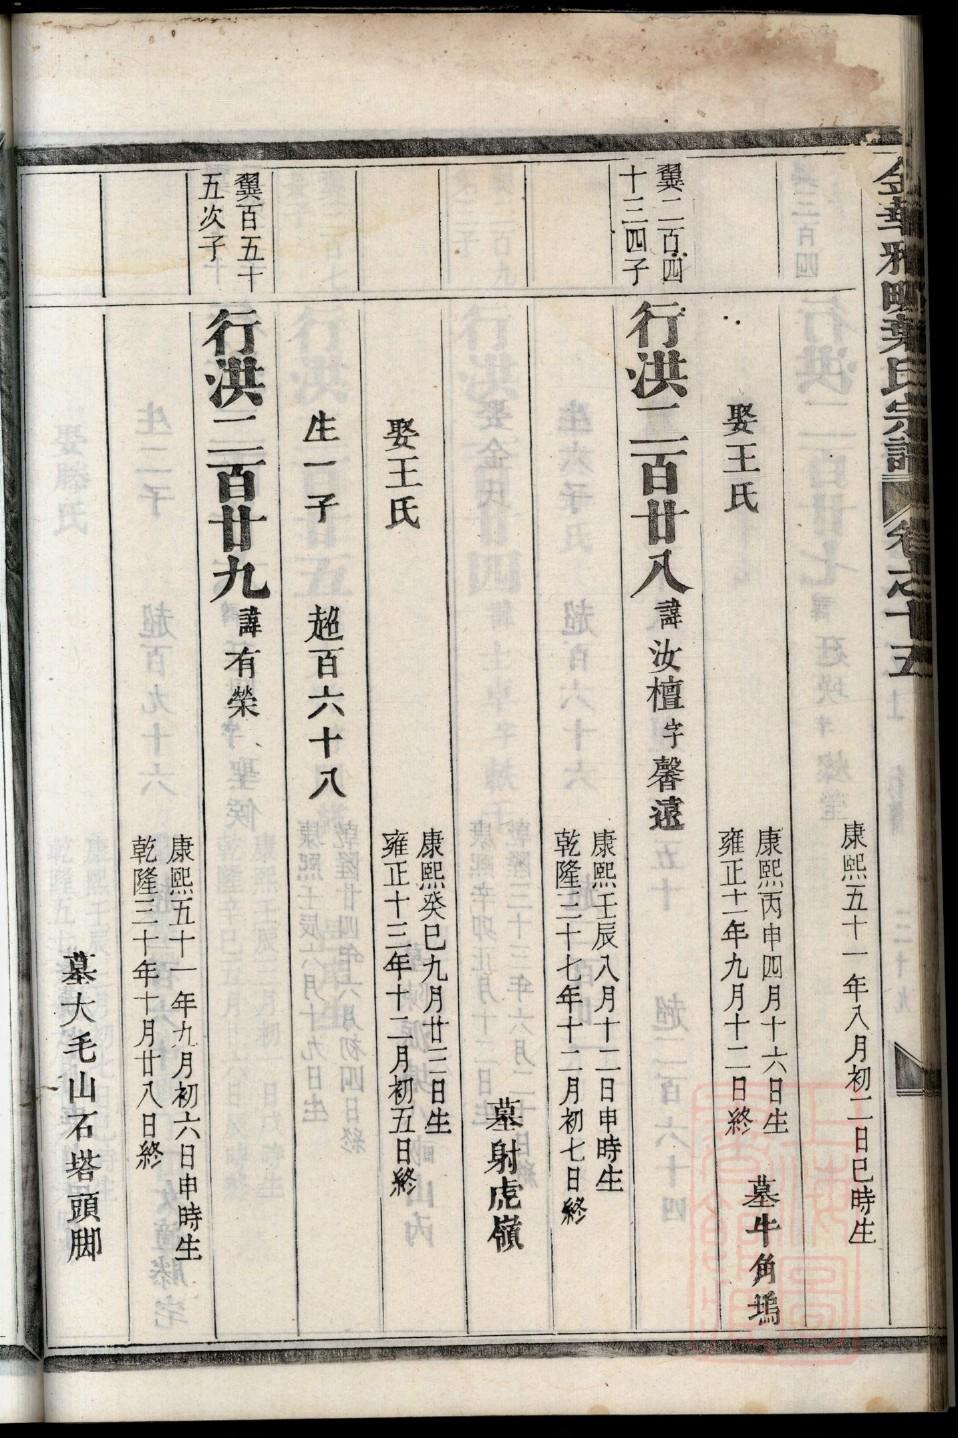 金華雅畈葉氏宗譜 卷之十五
康熙五十一年八月初二日巳時生
娶王氏
康熙丙申四月十六日生
雍正十一年九月十二日終
墓牛角塢
翼二百四
十三四子
行洪二百廿八 諱汝檀 字馨遠
康熙壬辰八月十二日申時生
乾隆三十七年十二月初七日終
墓射虎嶺
娶王氏
康熙癸巳九月廿二日生
雍正十三年十二月初五日終
生一子 超百六十八
翼百五十
五次子
行洪二百廿九 諱有榮
康熙五十一年九月初六日申時生
乾隆三十年十月廿八日終
墓大毛山石塔頭脚